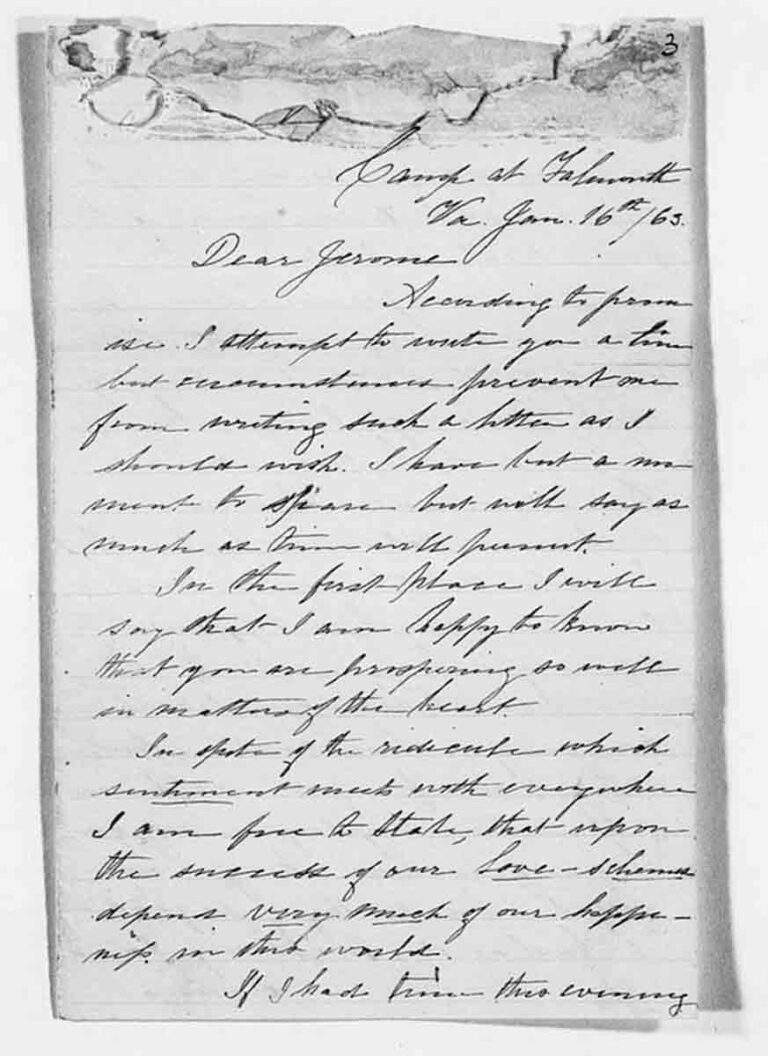 3
Camp at Falmouth
Va. Jan. 16th/63.
Dear Jerome
According to prom
ise I attempt to write you a line
but circumstances prevent me
from writing such a letter as I
should wish. I have but a mo
ment to spare but will say as
much as time will permit.
In the first place I will
say that I am happy to know
that you are prospering so well
in matters of the heart.
In spite of the ridicule which
sentiment meets with everywhere
I am free to state, that upon
the success of our love-schemes
depend very much of our happi-
ness in this world.
If I had time this evening